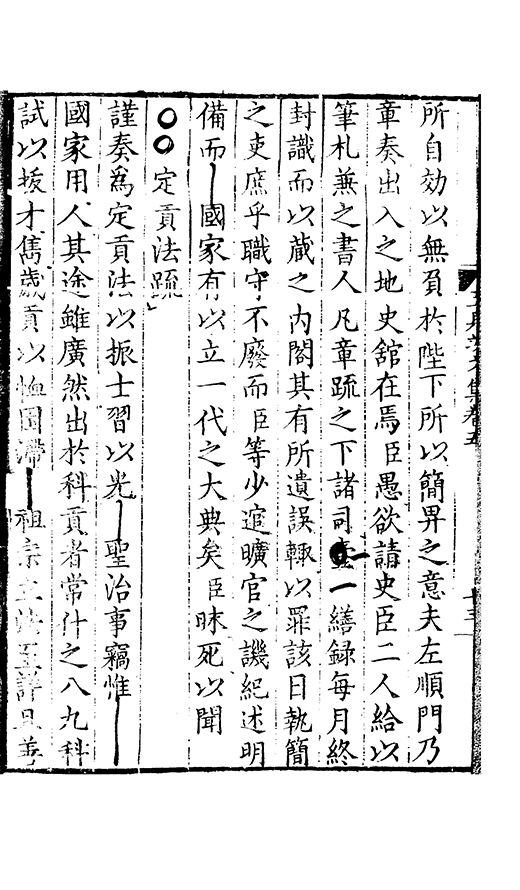 所自効以無負於陛下所以簡畀之意夫左順門乃
章奏出入之地史舘在焉臣愚欲請史臣二人給以
筆札兼之書人凡章疏之下諸司一繕録每月終
封識而以蔵之内閣其有所遺誤輙以罪該日執簡
之吏庶乎職守不廢而臣等少逭曠官之譏紀述明
備而國家有以立一代之大典矣臣昧死以聞
定貢法疏
謹奏為定貢法以振士習以光聖治事竊惟
國家用人其途雖廣然出於科貢者常什之八九科
試以拔才儁歲貢以恤困滯祖宗立法至詳且善
集卷五